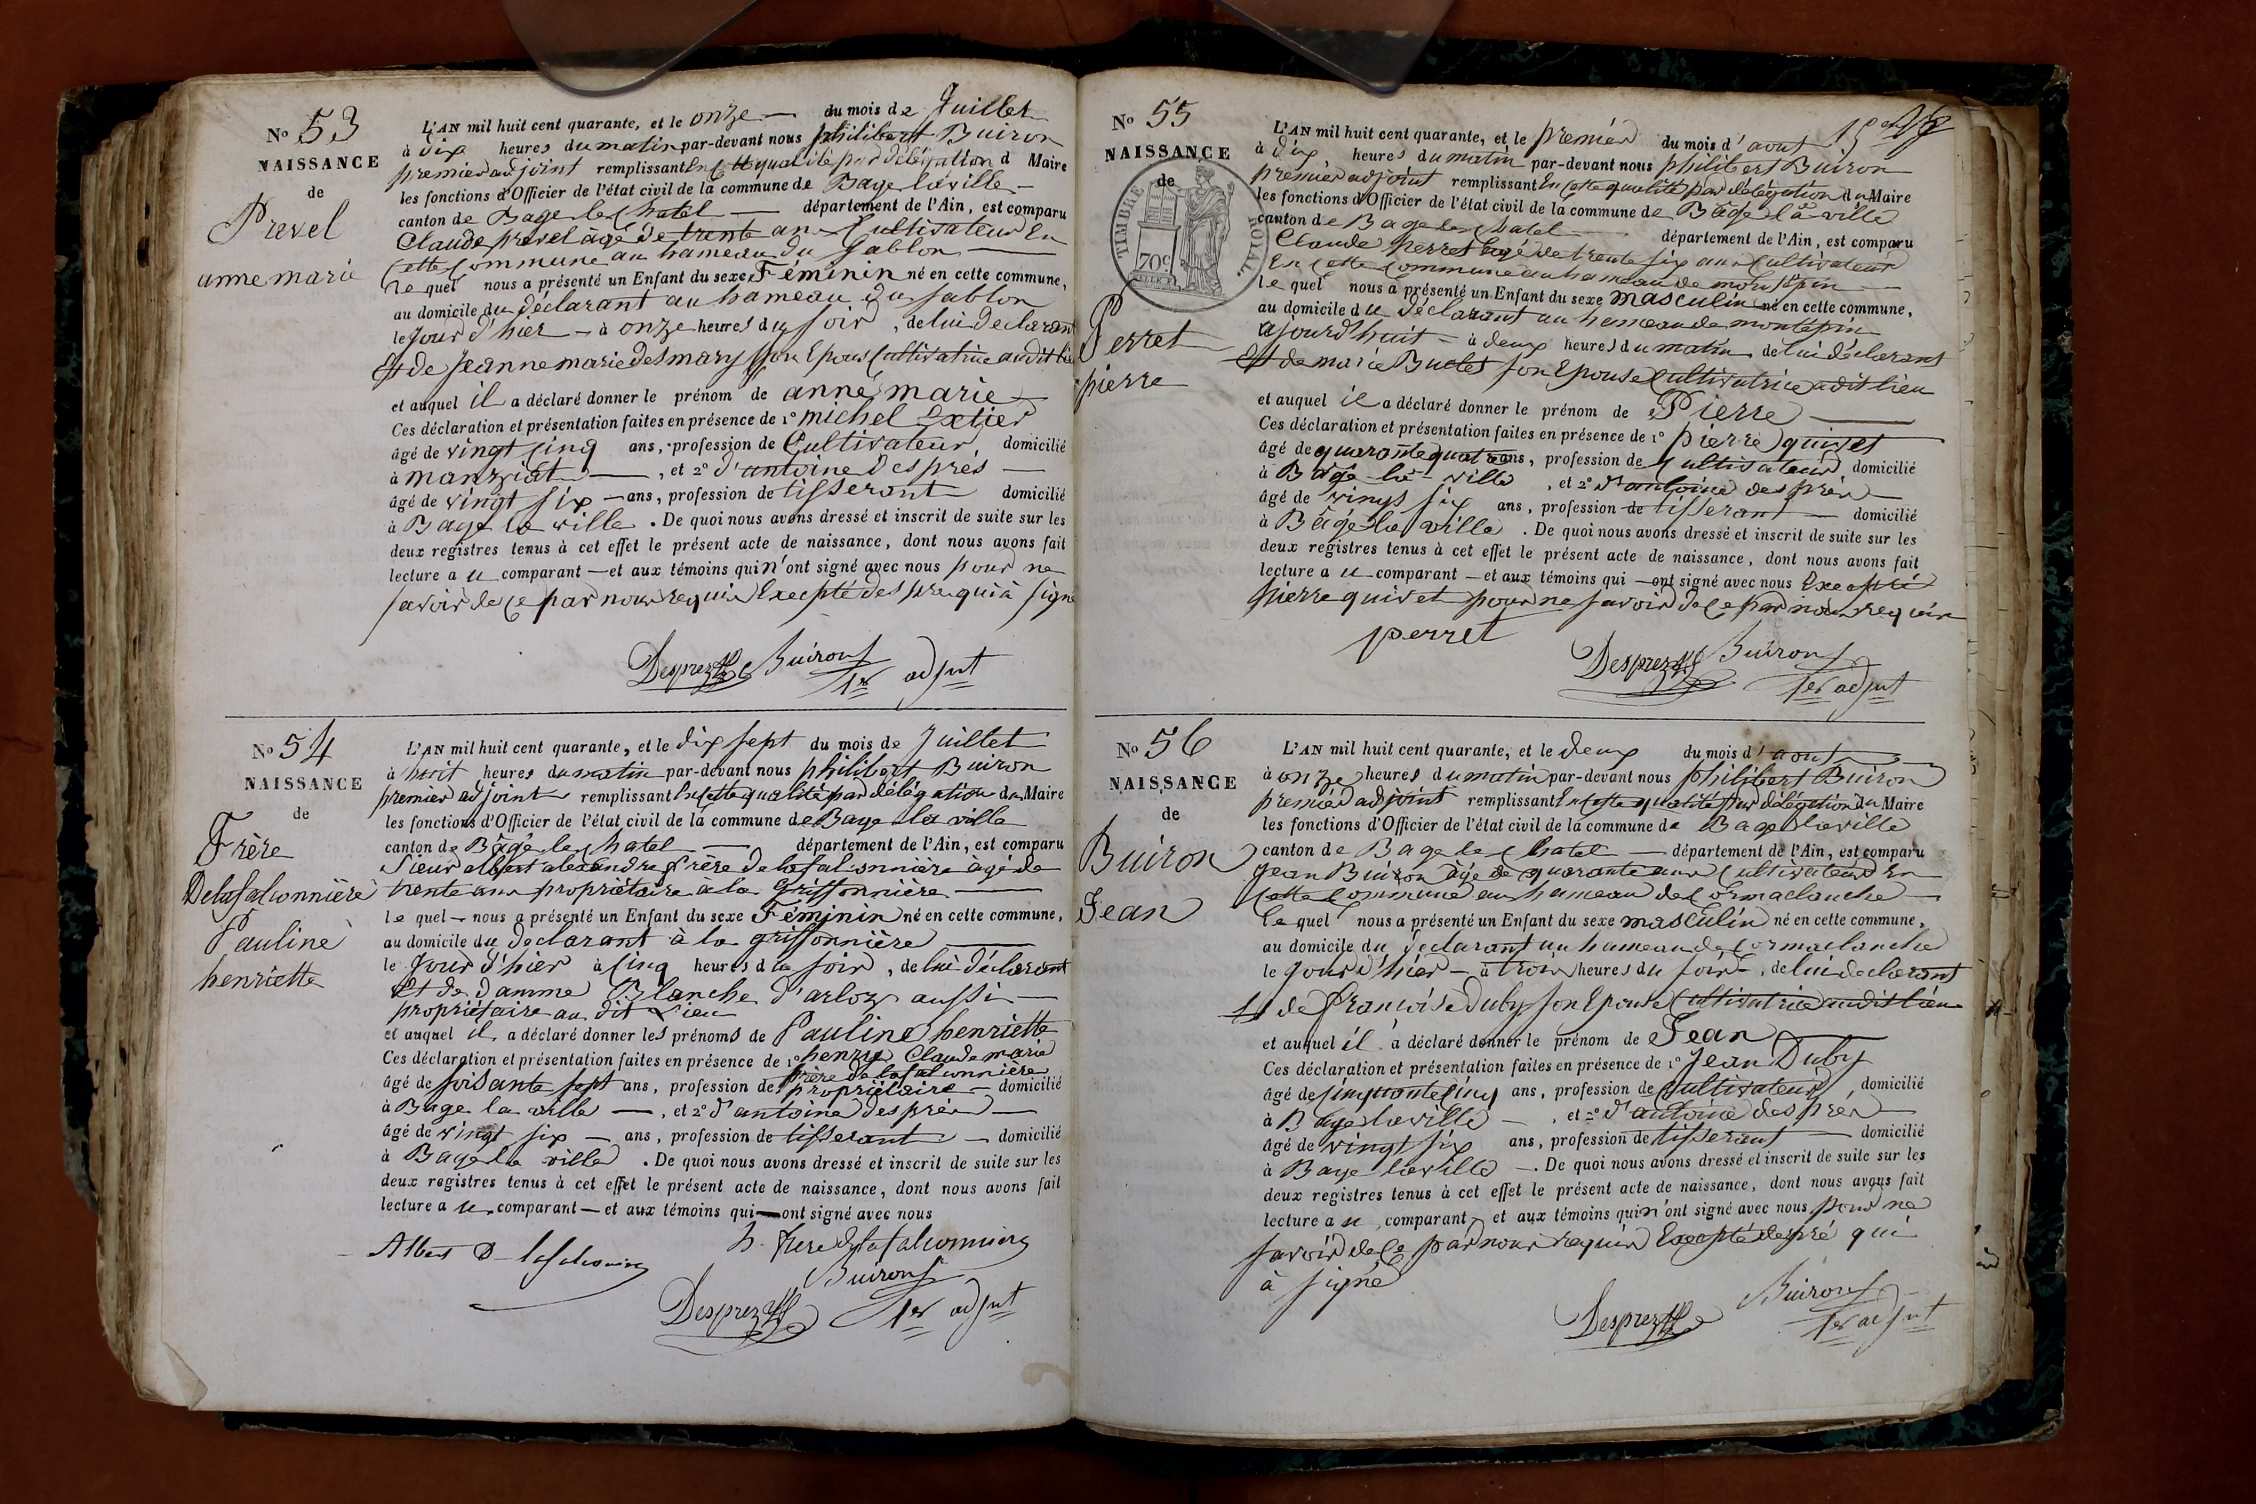 No 53
NAISSANCE
de
Prevel
anne marie
L'AN mil huit cent quarante, et le onze du mois de Juillet
à dix heures du matin par-devant nous philibert Buiron
premier adjoint remplissant En cette qualité par délégation d Maire
les fonctions d'Officier de l'état civil de la commune de Bage la ville
canton de Bage le Chatel département de l'Ain, est comparu
Claude prevel âgé de trente ans Cultivateur En
Cette Commune au hameau du Sablon
le quel nous a présenté un Enfant du sexe Féminin né en cette commune,
au domicile du déclarant au hameau du Sablon
le Jour d'hier à onze heures du soir, de lui declarant
Et de Jeanne marie desmary son Epouse Cultivatrice au dit lieu
et auquel il a déclaré donner le prénom de anne marie
Ces déclaration et présentation faites en présence de 1º michel
âgé de vingt cinq ans, profession de Cultivateur, domicilié
à manziat, et 2º d'antoine després
âgé de vingt six ans, profession de tisserant domicilié
à Bage la ville. De quoi nous avons dressé et inscrit de suite sur les
deux registres tenus à cet effet le présent acte de naissance, dont nous avons fait
lecture a u comparant et aux témoins qui n'ont signé avec nous pour ne
savoir de Ce par nous requis Excepté despre qui à signé
Desprez Buiron
1er adjnt
No 54
NAISSANCE
de
Frère
Delafalconnière
Pauline
henriette
L'AN mil huit cent quarante, et le dix sept du mois de Juillet
à huit heures du matin par-devant nous philibert Buiron
premier adjoint remplissant En cette qualité par délégation du Maire
les fonctions d'Officier de l'état civil de la commune de Bage la ville
canton de Bâgé le Chatel département de l'Ain, est comparu
Sieur albert alexandre frère de lafalconnière âgé de
trente ans propriétaire à la Griffonnière
le quel nous a présenté un Enfant du sexe Féminin né en cette commune,
au domicile du declarant à la griffonnière
le Jour d'hier à Cinq heures du soir, de lui déclarant
Et de damme Blanche d'arloz aussi
propriétaire au dit Lieu
et auquel il a déclaré donner les prénoms de Pauline henriette
Ces déclaration et présentation faites en présence de 1º henry Claude marie
frère de lafalconnière
âgé de soisante sept ans, profession de propriétaire domicilié
à Bage la ville, et 2º d'antoine després
âgé de vingt six ans, profession de tisserant domicilié
à Bage la ville. De quoi nous avons dressé et inscrit de suite sur les
deux registres tenus à cet effet le présent acte de naissance, dont nous avons fait
lecture a u comparant et aux témoins qui ont signé avec nous
Albert D lafalconnière h. frere de lafalconniere
Buiron
Desprez 1er adjnt
No 55
NAISSANCE
de
TIMBRE ROYAL
70c
Perret
pierre
L'AN mil huit cent quarante, et le premier du mois d'aout
à dix heures du matin par-devant nous philibert Buiron
premier adjoint remplissant En cette qualité par délégation du Maire
les fonctions d'Officier de l'état civil de la commune de Bâgé la ville
canton de Bage le Chatel département de l'Ain, est comparu
Claude perret âgé de trente six ans Cultivateur
En Cette Commune au hameau de montépin
le quel nous a présenté un Enfant du sexe masculin né en cette commune,
au domicile du déclarant au hameau de montépin
ajourd'huit à deux heures du matin de lui déclarant
Et de marie Buclet son Epouse Cultivatrice adit lieu
et auquel il a déclaré donner le prénom de Pierre
Ces déclaration et présentation faites en présence de 1º pierre quivet
âgé de quarante quatre ans, profession de Cultivateur domicilié
à Bâgé la ville, et 2º d'antoine després
âgé de vingt six ans, profession de tisserant domicilié
à Bâgé la ville. De quoi nous avons dressé et inscrit de suite sur les
deux registres tenus à cet effet le présent acte de naissance, dont nous avons fait
lecture a u comparant et aux témoins qui ont signé avec nous Excepté
pierre quivet pour ne savoir de Ce par nous requis
perret
Desprez Buiron
1er adjnt
No 56
NAISSANCE
de
Buiron
Jean
L'AN mil huit cent quarante, et le deux du mois d'aout
à onze heures du matin par-devant nous philibert Buiron
premier adjoint remplissant En cette qualité par délégation du Maire
les fonctions d'Officier de l'état civil de la commune de Bage la ville
canton de Bage le Chatel département de l'Ain, est comparu
Jean Buiron âgé de quarante ans Cultivateur En
Cette Commune au hameau de Cormaclanche
le quel nous a présenté un Enfant du sexe masculin né en cette commune,
au domicile du declarant au hameau de Cormaclanche
le Jour d'hier à trois heures du soir, de lui declarant
Et de francoise Duby son Epouse Cultivatrice audit lieu
et auquel il à déclaré donner le prénom de Jean
Ces déclaration et présentation faites en présence de 1º Jean Duby
âgé de sinquante sinq ans, profession de Cultivateur domicilié
à Bage la ville, et 2º d'antoine després
âgé de vingt six ans, profession de tisserant domicilié
à Bage la ville. De quoi nous avons dressé et inscrit de suite sur les
deux registres tenus à cet effet le présent acte de naissance, dont nous avons fait
lecture a u comparant et aux témoins qui n'ont signé avec nous pour ne
savoir de Ce par nous requis Excepté despré qui
à signé
Desprez Buiron
1er adjnt